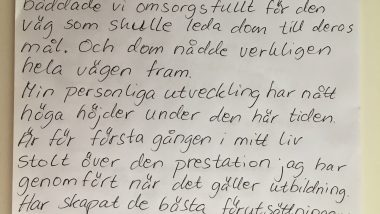 bäddade vi omsorgsfullt för den
väg som skulle leda dom till deras
mål. Och dom nådde verkligen
hela vägen fram.
Min personliga utveckling har nått
höga höjder under den här tiden.
Är för första gången i mitt liv
stolt över den prestation jag har
genomfört när det gäller utbildning.
Har skapat de bästa förutsättningar